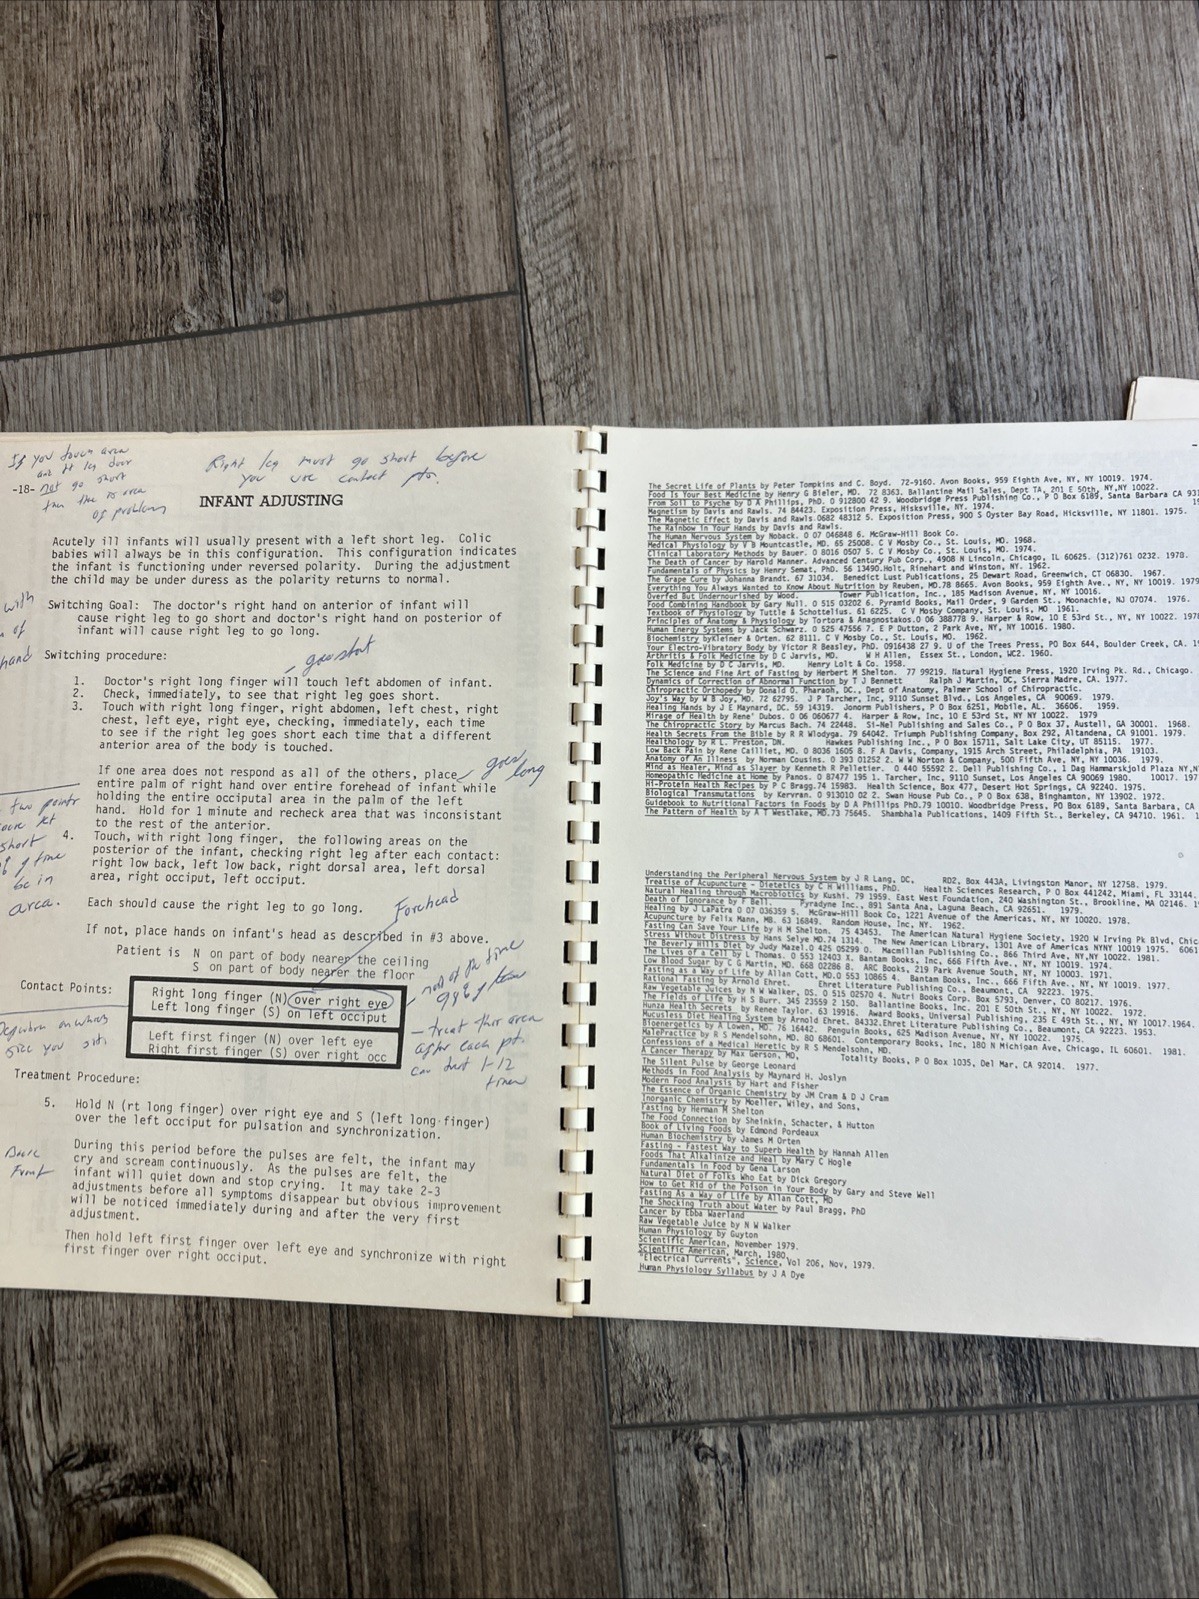 If you touch area
and rt leg does
not go short
then this is area
of problem
Right leg must go short before
you use contact pts.
-18-
INFANT ADJUSTING
Acutely ill infants will usually present with a left short leg. Colic
babies will always be in this configuration. This configuration indicates
the infant is functioning under reversed polarity. During the adjustment
the child may be under duress as the polarity returns to normal.
with
of
hand
Switching Goal: The doctor's right hand on anterior of infant will
cause right leg to go short and doctor's right hand on posterior of
infant will cause right leg to go long.
Switching procedure:
- goes short
1. Doctor's right long finger will touch left abdomen of infant.
2. Check, immediately, to see that right leg goes short.
3. Touch with right long finger, right abdomen, left chest, right
chest, left eye, right eye, checking, immediately, each time
to see if the right leg goes short each time that a different
anterior area of the body is touched.
goes
long
If one area does not respond as all of the others, place
entire palm of right hand over entire forehead of infant while
holding the entire occiputal area in the palm of the left
hand. Hold for 1 minute and recheck area that was inconsistent
to the rest of the anterior.
two points
short
be in
area.
4. Touch, with right long finger, the following areas on the
posterior of the infant, checking right leg after each contact:
right low back, left low back, right dorsal area, left dorsal
area, right occiput, left occiput.
Each should cause the right leg to go long.
Forehead
If not, place hands on infant's head as described in #3 above.
Patient is N on part of body nearer the ceiling
S on part of body nearer the floor
Contact Points:
Right long finger (N) over right eye
Left long finger (S) on left occiput
Left first finger (N) over left eye
Right first finger (S) over right occ
most of the time
98% of time
- treat this area
after each pt.
can last 1-12
times
Depends on which
side you sit.
Treatment Procedure:
5. Hold N (rt long finger) over right eye and S (left long finger)
over the left occiput for pulsation and synchronization.
Back
Front
During this period before the pulses are felt, the infant may
cry and scream continuously. As the pulses are felt, the
infant will quiet down and stop crying. It may take 2-3
adjustments before all symptoms disappear but obvious improvement
will be noticed immediately during and after the very first
adjustment.
Then hold left first finger over left eye and synchronize with right
first finger over right occiput.
The Secret Life of Plants by Peter Tompkins and C. Boyd. 72-9160. Avon Books, 959 Eighth Ave, NY, NY 10019. 1974.
Food Is Your Best Medicine by Henry G Bieler, MD. 72 8363. Ballantine Mail Sales, Dept TA, 201 E 50th, NY,NY 10022.
From Soil to Psyche by D A Phillips, PhD. 0 912800 42 9. Woodbridge Press Publishing Co., P O Box 6189, Santa Barbara CA
Magnetism by Davis and Rawls. 74 84423. Exposition Press, Hicksville, NY. 1974.
The Magnetic Effect by Davis and Rawls.0682 48312 5. Exposition Press, 900 S Oyster Bay Road, Hicksville, NY 11801. 1975.
The Rainbow in Your Hands by Davis and Rawls.
The Human Nervous System by Noback. 0 07 046848 6. McGraw-Hill Book Co.
Medical Physiology by V B Mountcastle, MD. 65 25008. C V Mosby Co., St. Louis, MO. 1968.
Clinical Laboratory Methods by Bauer. 0 8016 0507 5. C V Mosby Co., St. Louis, MO. 1974.
The Death of Cancer by Harold Manner. Advanced Century Pub Corp., 4908 N Lincoln, Chicago, IL 60625. (312)761 0232. 1978.
Fundamentals of Physics by Henry Semat, PhD. 56 13490.Holt, Rinehart and Winston, NY. 1962.
The Grape Cure by Johanna Brandt. 67 31034. Benedict Lust Publications, 25 Dewart Road, Greenwich, CT 06830. 1967.
Everything You Always Wanted to Know About Nutrition by Reuben, MD.78 8665. Avon Books, 959 Eighth Ave., NY, NY 10019. 1979
Overfed But Undernourished by Wood. Tower Publication, Inc., 185 Madison Avenue, NY, NY 10016.
Food Combining Handbook by Gary Null. 0 515 03202 6. Pyramid Books, Mail Order, 9 Garden St., Moonachie, NJ 07074. 1976.
Textbook of Physiology by Tuttle & Schottelius. 61 6225. C V Mosby Company, St. Louis, MO 1961.
Principles of Anatomy & Physiology by Tortora & Anagnostakos.0 06 388778 9. Harper & Row, 10 E 53rd St., NY, NY 10022. 1978
Human Energy Systems by Jack Schwarz. 0 525 47556 7. E P Dutton, 2 Park Ave, NY, NY 10016. 1980.
Biochemistry byKleiner & Orten. 62 8111. C V Mosby Co., St. Louis, MO. 1962.
Your Electro-Vibratory Body by Victor R Beasley, PhD. 0916438 27 9. U of the Trees Press, PO Box 644, Boulder Creek, CA.
Arthritis & Folk Medicine by D C Jarvis, MD. W H Allen, Essex St., London, WC2. 1960.
Folk Medicine by D C Jarvis, MD. Henry Lolt & Co. 1958.
The Science and Fine Art of Fasting by Herbert M Shelton. 77 99219. Natural Hygiene Press, 1920 Irving Pk. Rd., Chicago.
Dynamics of Correction of Abnormal Function by T J Bennett Ralph J Martin, DC, Sierra Madre, CA. 1977.
Chiropractic Orthopedy by Donald O. Pharaoh, DC., Dept of Anatomy, Palmer School of Chiropractic.
Joy's Way by W B Joy, MD. 72 62795. J P Tarcher, Inc, 9110 Sunset Blvd., Los Angeles, CA 90069. 1979.
Healing Hands by J E Maynard, DC. 59 14319. Jonorm Publishers, P O Box 6251, Mobile, AL. 36606. 1959.
Mirage of Health by Rene' Dubos. 0 06 060677 4. Harper & Row, Inc, 10 E 53rd St, NY NY 10022. 1979
The Chiropractic Story by Marcus Bach. 74 22448. Si-Nel Publishing and Sales Co., P O Box 37, Austell, GA 30001. 1968.
Health Secrets From the Bible by R R Wlodyga. 79 64042. Triumph Publishing Company, Box 292, Altandena, CA 91001. 1979.
Healthology by R L. Preston, DN. Hawkes Publishing Inc., P O Box 15711, Salt Lake City, UT 85115. 1977.
Low Back Pain by Rene Cailliet, MD. 0 8036 1605 8. F A Davis, Company, 1915 Arch Street, Philadelphia, PA 19103.
Anatomy of An Illness by Norman Cousins. 0 393 01252 2. W W Norton & Company, 500 Fifth Ave, NY, NY 10036. 1979.
Mind as Healer, Mind as Slayer by Kenneth R Pelletier. 0 440 55592 2. Dell Publishing Co., 1 Dag Hammarskjold Plaza NY,NY
Homeopathic Medicine at Home by Panos. 0 87477 195 1. Tarcher, Inc, 9110 Sunset, Los Angeles CA 90069 1980. 10017. 197
Hi-Protein Health Recipes by P C Bragg.74 15983. Health Science, Box 477, Desert Hot Springs, CA 92240. 1975.
Biological Transmutations by Kervran. 0 913010 02 2. Swan House Pub Co., P O Box 638, Binghamton, NY 13902. 1972.
Guidebook to Nutritional Factors in Foods by D A Phillips PhD.79 10010. Woodbridge Press, PO Box 6189, Santa Barbara, CA
The Pattern of Health by A T Westlake, MD.73 75645. Shambhala Publications, 1409 Fifth St., Berkeley, CA 94710. 1961.
Understanding the Peripheral Nervous System by J R Lang, DC, RD2, Box 443A, Livingston Manor, NY 12758. 1979.
Treatise of Acupuncture - Dietetics by C H Williams, PhD. Health Sciences Research, P O Box 441242, Miami, FL 33144.
Natural Healing through Macrobiotics by Kushi. 79 1959. East West Foundation, 240 Washington St., Brookline, MA 02146.
Death of Ignorance by F Bell. Pyradyne Inc., 891 Santa Ana, Laguna Beach, CA 92651. 1979.
Healing by J LaPatra 0 07 036359 5. McGraw-Hill Book Co, 1221 Avenue of the Americas, NY, NY 10020. 1978.
Acupuncture by Felix Mann, MB. 63 16849. Random House, Inc, NY. 1962.
Fasting Can Save Your Life by H M Shelton. 75 43453. The American Natural Hygiene Society, 1920 W Irving Pk Blvd, Chic
Stress Without Distress by Hans Selye MD.74 1314. The New American Library, 1301 Ave of Americas NYNY 10019 1975.
The Beverly Hills Diet by Judy Mazel.0 425 05299 0. Macmillan Publishing Co., 866 Third Ave, NY,NY 10022. 1981.
The Lives of a Cell by L Thomas. 0 553 12403 X. Bantam Books, Inc, 666 Fifth Ave., NY, NY 10019. 1974.
Low Blood Sugar by C G Martin, MD. 668 02286 8. ARC Books, 219 Park Avenue South, NY, NY 10003. 1971.
Fasting as a Way of Life by Allan Cott, MD.0 553 10865 4. Bantam Books, Inc., 666 Fifth Ave., NY, NY 10019. 1977.
Rational Fasting by Arnold Ehret. Ehret Literature Publishing Co., Beaumont, CA 92223. 1975.
Raw Vegetable Juices by N W Walker, DS. 0 515 02570 4. Nutri Books Corp. Box 5793, Denver, CO 80217. 1976.
The Fields of Life by H S Burr. 345 23559 2 150. Ballantine Books, Inc. 201 E 50th St., NY, NY 10022. 1972.
Hunza Health Secrets by Renee Taylor. 63 19916. Award Books, Universal Publishing, 235 E 49th St., NY, NY 10017.1964.
Mucusless Diet Healing System by Arnold Ehret. 84332.Ehret Literature Publishing Co., Beaumont, CA 92223. 1953.
Bioenergetics by A Lowen, MD. 76 16442. Penguin Books, 625 Madison Avenue, NY, NY 10022. 1975.
MalePractice by R S Mendelsohn, MD. 80 68601. Contemporary Books, Inc, 180 N Michigan Ave, Chicago, IL 60601. 1981.
Confessions of a Medical Heretic by R S Mendelsohn, MD.
A Cancer Therapy by Max Gerson, MD, Totality Books, P O Box 1035, Del Mar, CA 92014. 1977.
The Silent Pulse by George Leonard
Methods in Food Analysis by Maynard H. Joslyn
Modern Food Analysis by Hart and Fisher
The Essence of Organic Chemistry by JM Cram & D J Cram
Inorganic Chemistry by Moeller, Wiley, and Sons,
Fasting by Herman M Shelton
The Food Connection by Sheinkin, Schacter, & Hutton
Book of Living Foods by Edmond Pordeaux
Human Biochemistry by James M Orten
Fasting - Fastest Way to Superb Health by Hannah Allen
Foods That Alkalinize and Heal by Mary C Hogle
Fundamentals in Food by Gena Larson
Natural Diet of Folks Who Eat by Dick Gregory
How to Get Rid of the Poison in Your Body by Gary and Steve Well
Fasting As a Way of Life by Allan Cott, MD
The Shocking Truth about Water by Paul Bragg, PhD
Cancer by Ebba Waerland
Raw Vegetable Juice by N W Walker
Human Physiology by Guyton
Scientific American, November 1979.
Scientific American, March, 1980.
"Electrical Currents", Science, Vol 206, Nov, 1979.
Human Physiology Syllabus by J A Dye